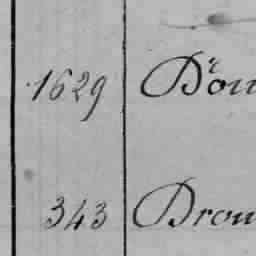 1629 Dou
343 Drou